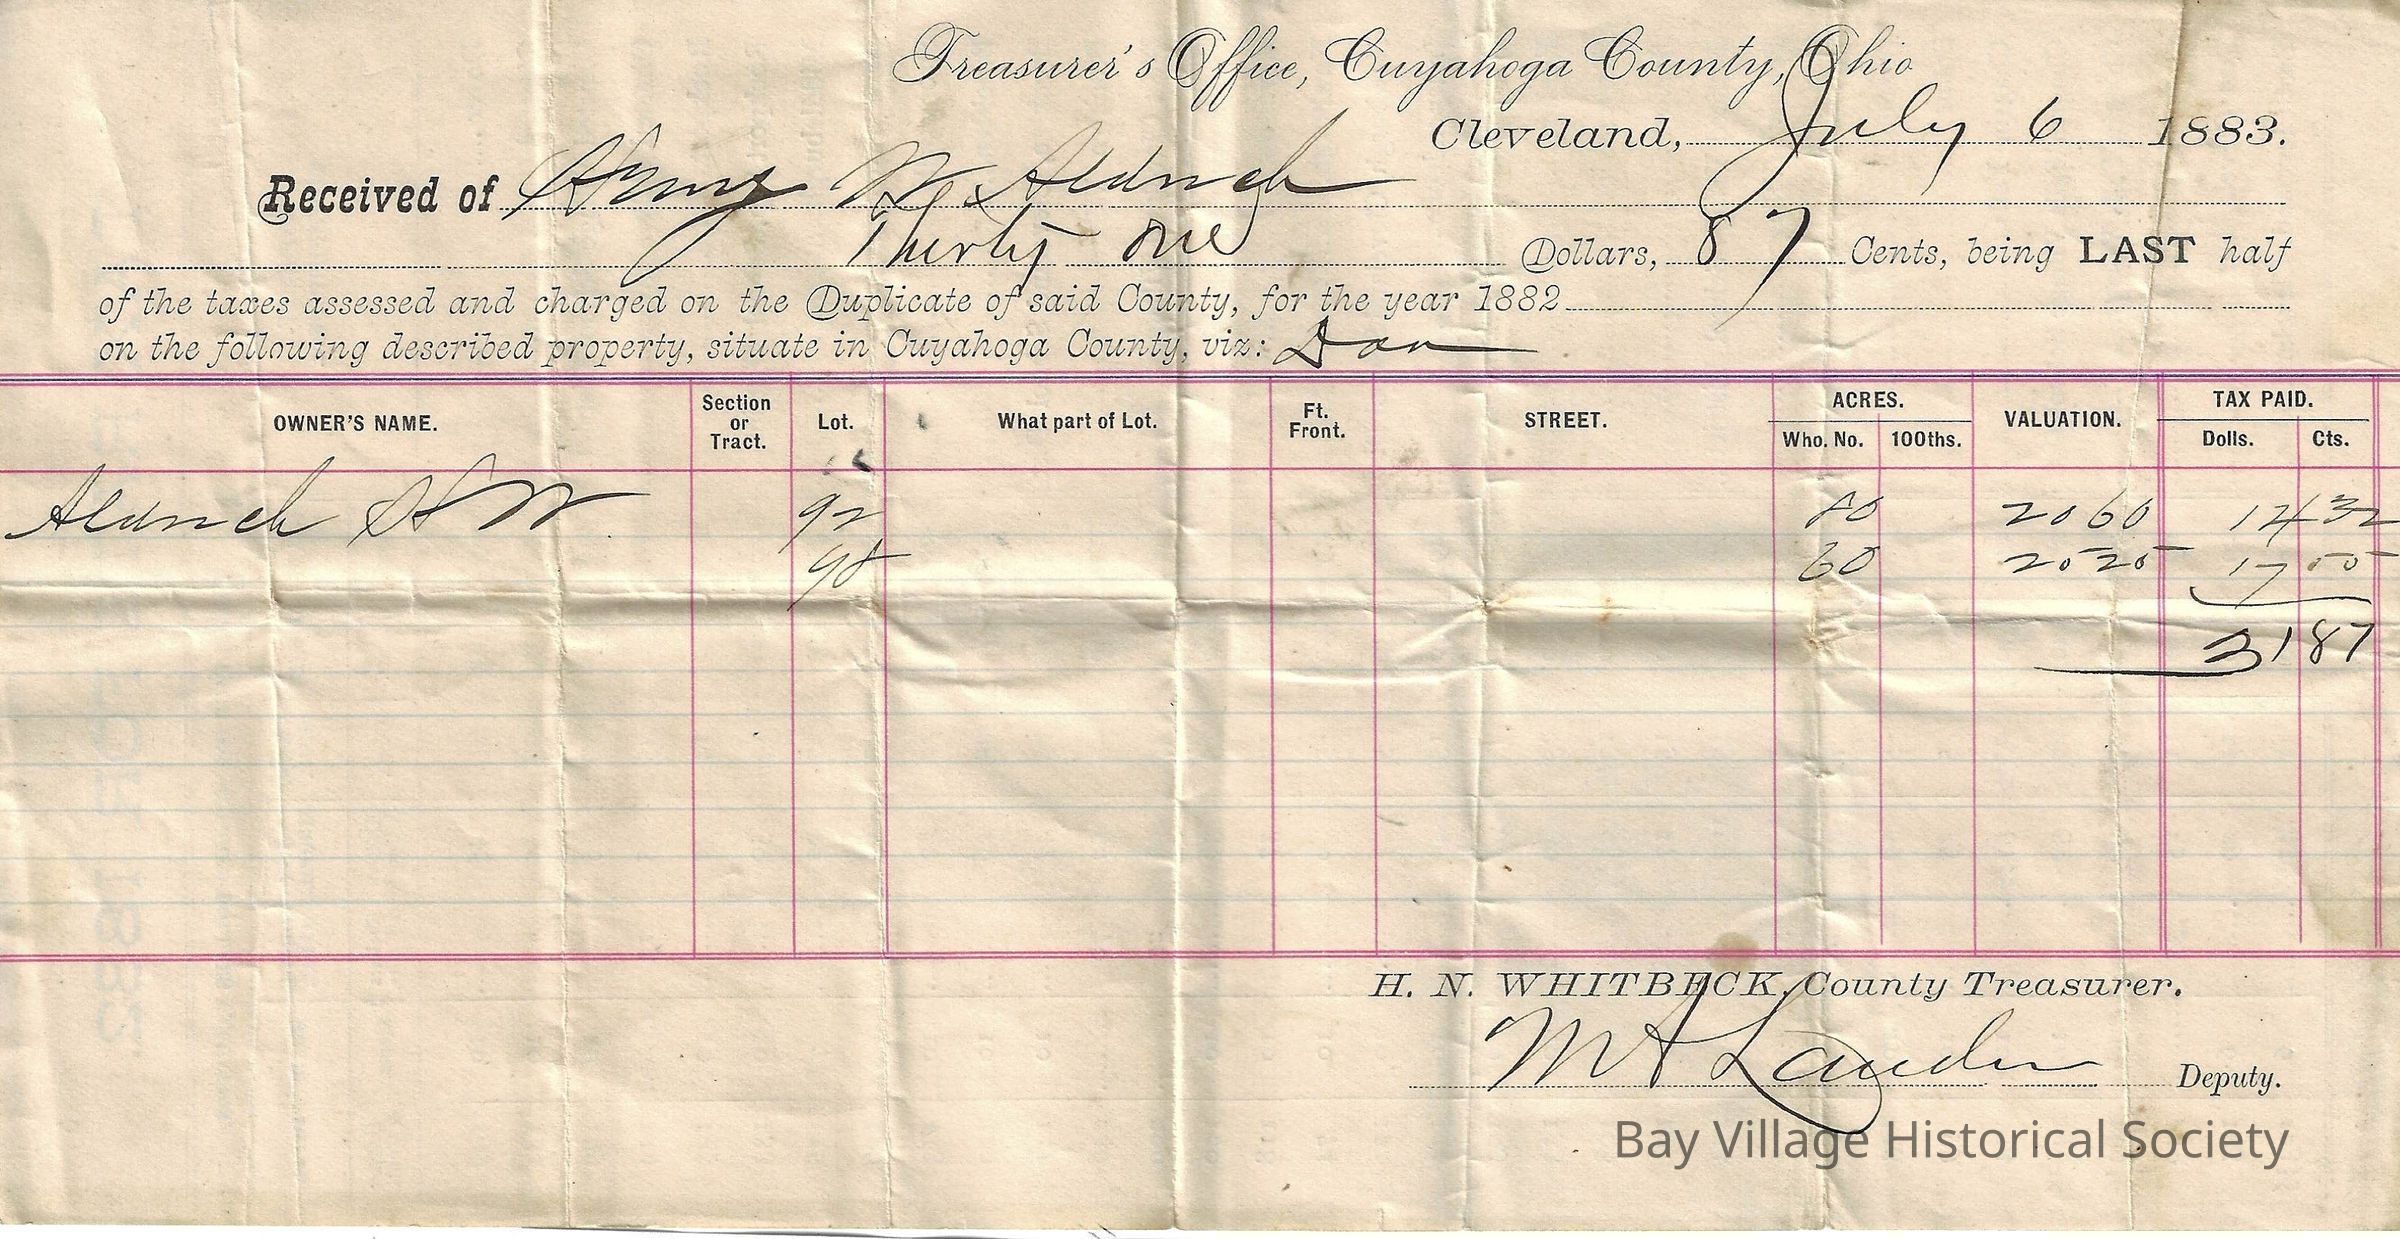 Treasurer's Office, Cuyahoga County, Ohio
Cleveland, July 6 1883.
Received of Henry W Aldrich
Thirty one Dollars, 87 Cents, being LAST half
of the taxes assessed and charged on the Duplicate of said County, for the year 1882
on the following described property, situate in Cuyahoga County, viz: Dov
OWNER'S NAME. Section or Tract. Lot. What part of Lot. Ft. Front. STREET. ACRES. Who. No. 100ths. VALUATION. TAX PAID. Dolls. Cts.
Aldrich H W 92 80 2060 14 32
98 60 2525 17 55
31 87
H. N. WHITBECK, County Treasurer.
M A Lander Deputy.
Bay Village Historical Society